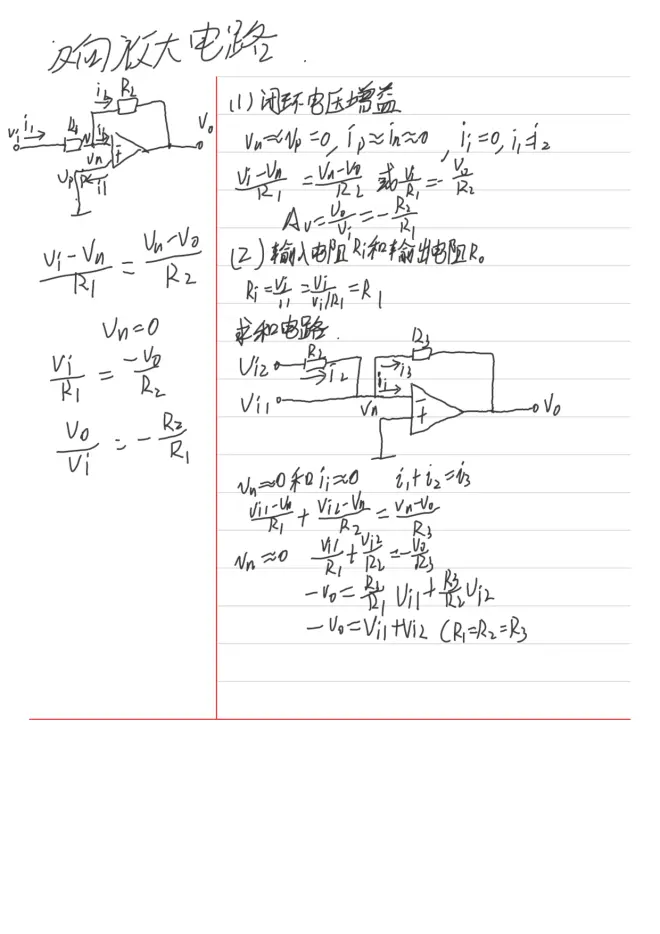 反向放大电路.
R2
i2
i1
Vi
R1
Vn
Vp
Vo
(Vi-Vn)/R1 = (Vn-Vo)/R2
Vn=0
Vi/R1 = -Vo/R2
Vo/Vi = -R2/R1
(1) 闭环电压增益
Vn≈Vp=0, ip≈in≈0, ii=0, i1=i2
(Vi-Vn)/R1 = (Vn-Vo)/R2 或 Vi/R1 = -Vo/R2
Av = Vo/Vi = -R2/R1
(2) 输入电阻Ri和输出电阻Ro
Ri = Vi/i1 = Vi/(Vi/R1) = R1
求和电路.
R3
Vi2
i2
i3
Vi1
ii
Vn
Vo
Vn≈0和ii≈0 i1+i2=i3
(Vi1-Vn)/R1 + (Vi2-Vn)/R2 = (Vn-Vo)/R3
Vn≈0 Vi1/R1 + Vi2/R2 = -Vo/R3
Vi1 + R3/R2 Vi2
-Vo=Vi1+Vi2 (R1=R2=R3